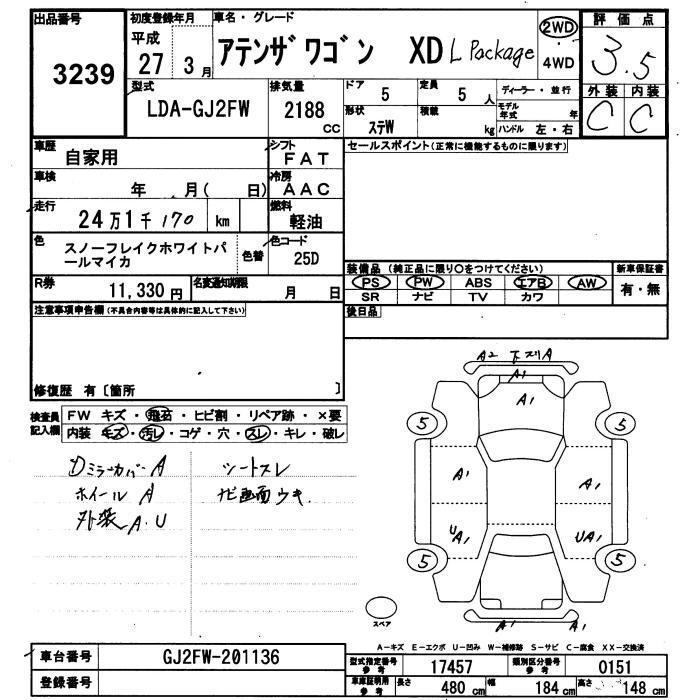 出品番号 初度登録年月 車名・グレード 2WD 評価点
3239 平成 27 3月 アテンザワゴン XD L Package 4WD 3.5
型式 排気量 ドア 定員 ディーラー・並行 外装 内装
LDA-GJ2FW 2188 cc 5 5人 モデル年式 年 C C
形状 ステW 積載 kg ハンドル 左・右
車歴 自家用 シフト FAT セールスポイント(正常に機能するものに限ります)
車検 年 月( 日) 冷房 AAC
走行 24万1千170 km 燃料 軽油
色 スノーフレイクホワイトパールマイカ 色替 色コード 25D
装備品(純正品に限り○をつけてください) 新車保証書
R券 11,330円 名変通知期限 月 日 PS PW ABS エアB AW 有・無
SR ナビ TV カワ
注意事項申告欄(不具合内容等は具体的に記入して下さい) 後日品
修復歴 有〔箇所 〕
検査員記入欄 FW キズ・飛石・ヒビ割・リペア跡・×要
内装 キズ・汚レ・コゲ・穴・スレ・キレ・破レ
Dミラーカバー A シートスレ
ホイール A ナビ画面ウキ.
外装 A.U
A2 下スリA
A1
A1
5 5
A1 A1
UA1 UA1
5 5
スペア
A1 A1
A-キズ E-エクボ U-凹み W-補修跡 S-サビ C-腐食 XX-交換済
車台番号 GJ2FW-201136 型式指定番号 参考 17457 類別区分番号 参考 0151
登録番号 車庫証明用 参考 長さ 480cm 幅 184cm 高さ 148cm